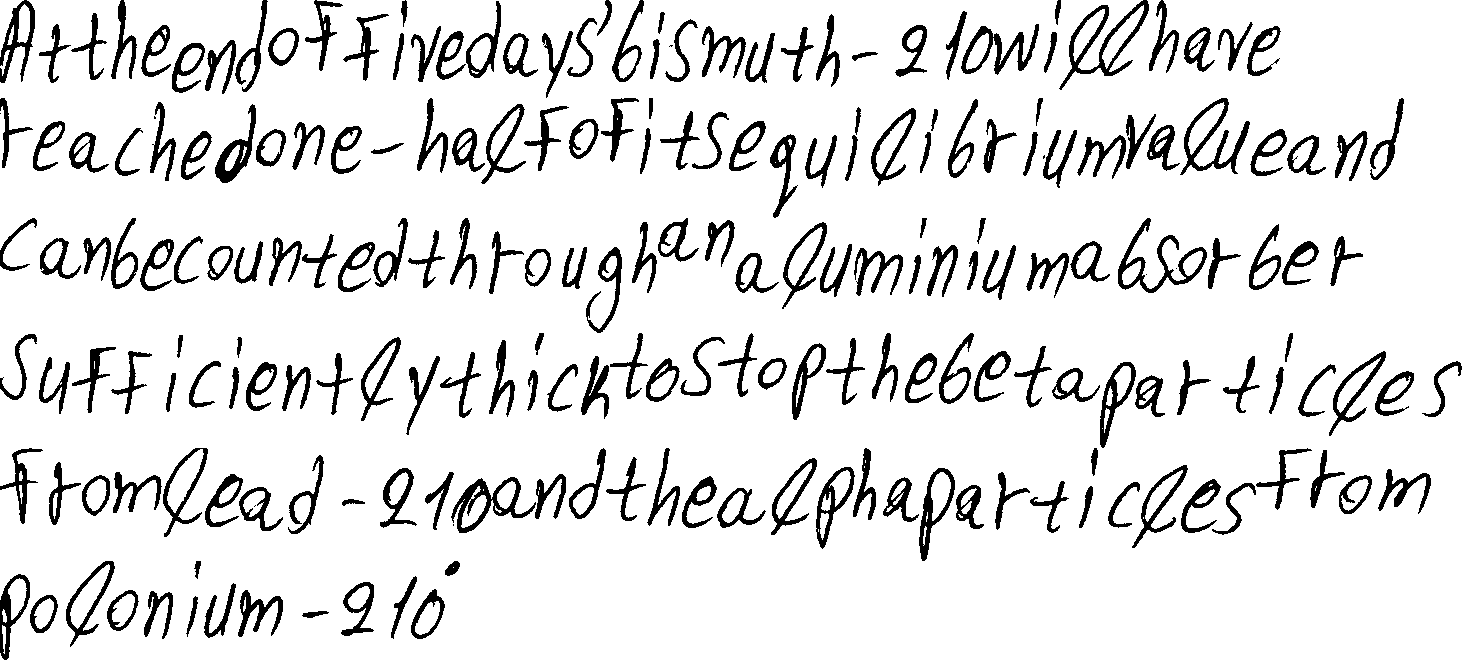 At the end of five days' bismuth-210 will have
reached one-half of its equilibrium value and
can be counted through an aluminium absorber
sufficiently thick to stop the beta particles
from lead-210 and the alpha particles from
polonium-210.